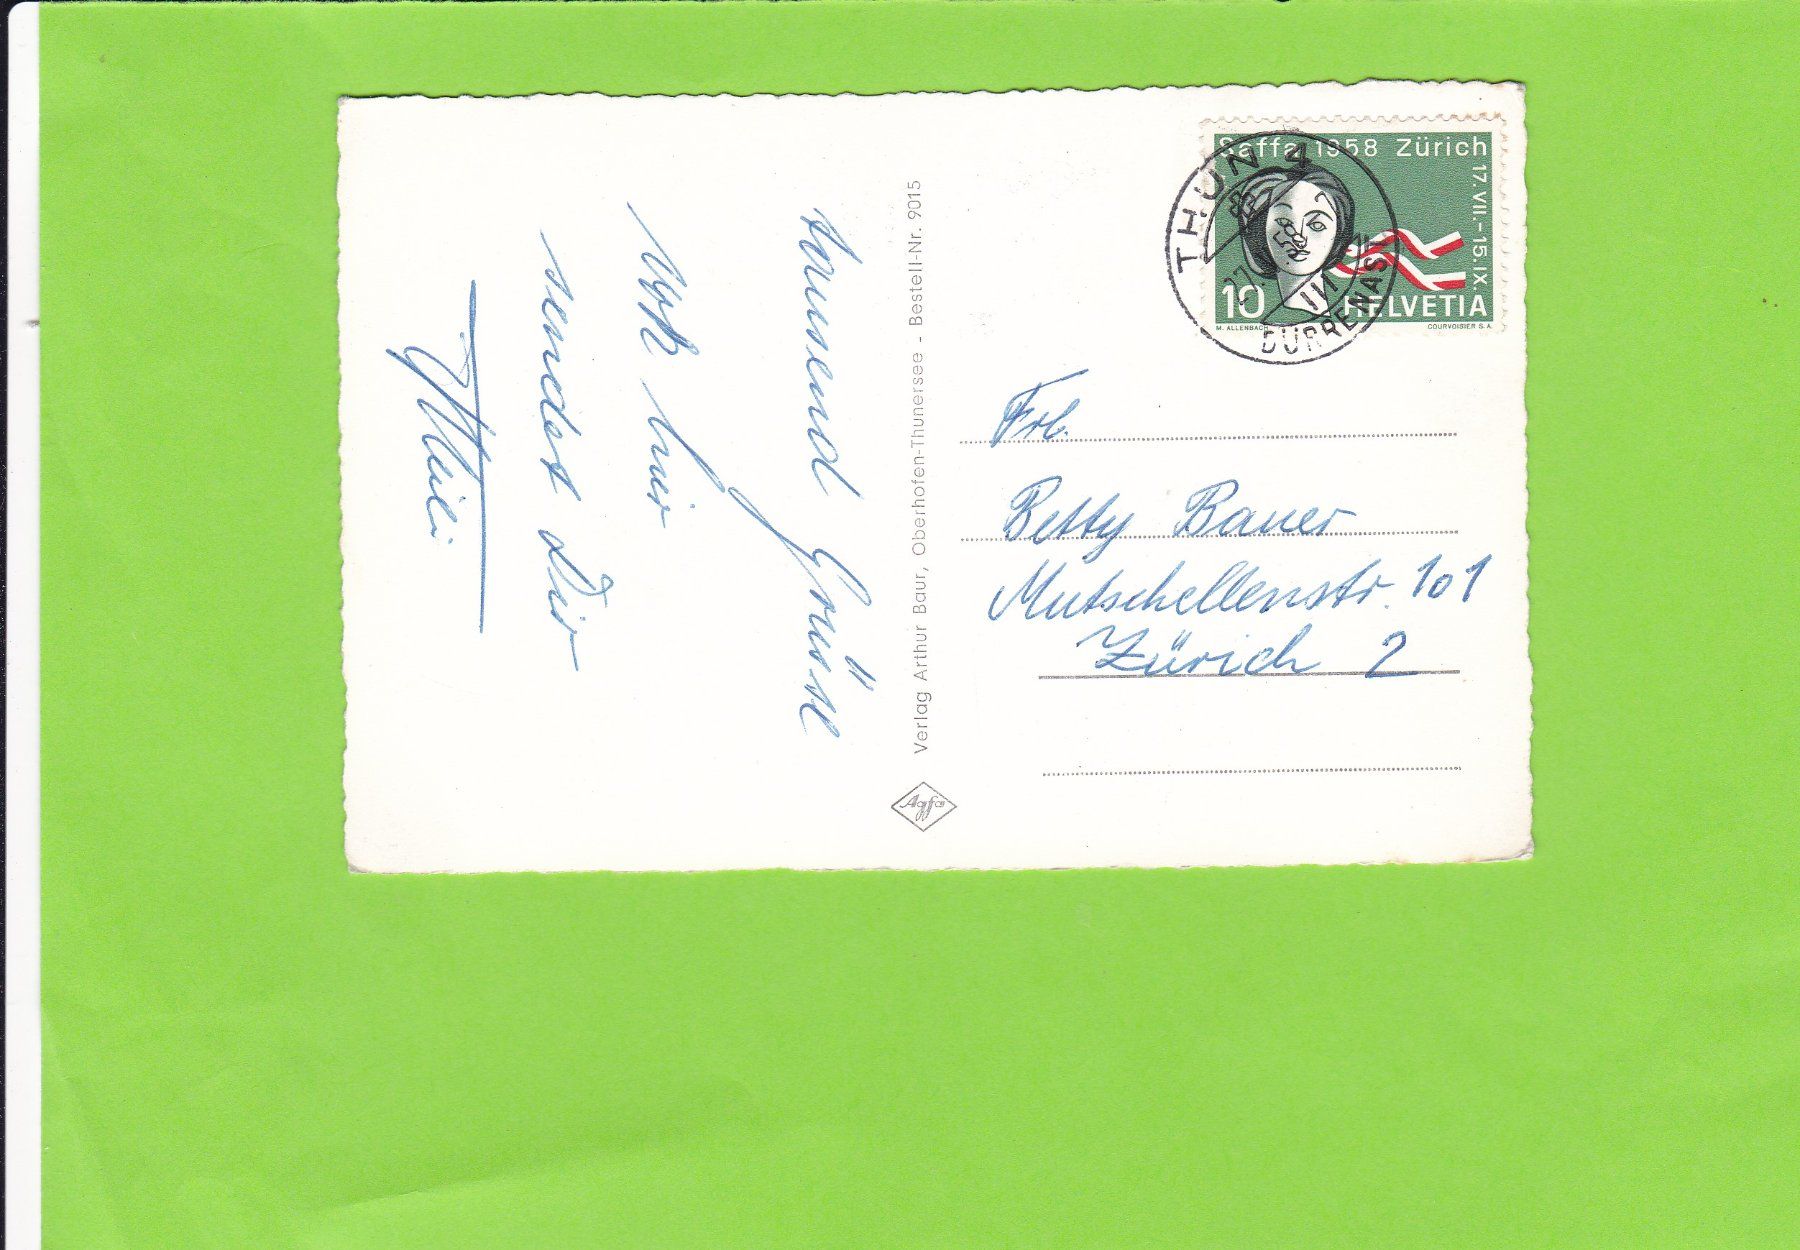 tausend Grüsse
von hier
sendet Dir
Willi
Verlag Arthur Baur, Oberhofen-Thunersee - Bestell-Nr. 9015
Agfa
Saffa 1958 Zürich
17.VII.-15.IX.
10
HELVETIA
M. ALLENBACH
COURVOISIER S.A.
THUN 4
DÜRRENAST
Frl.
Betty Bauer
Mutschellenstr. 101
Zürich 2